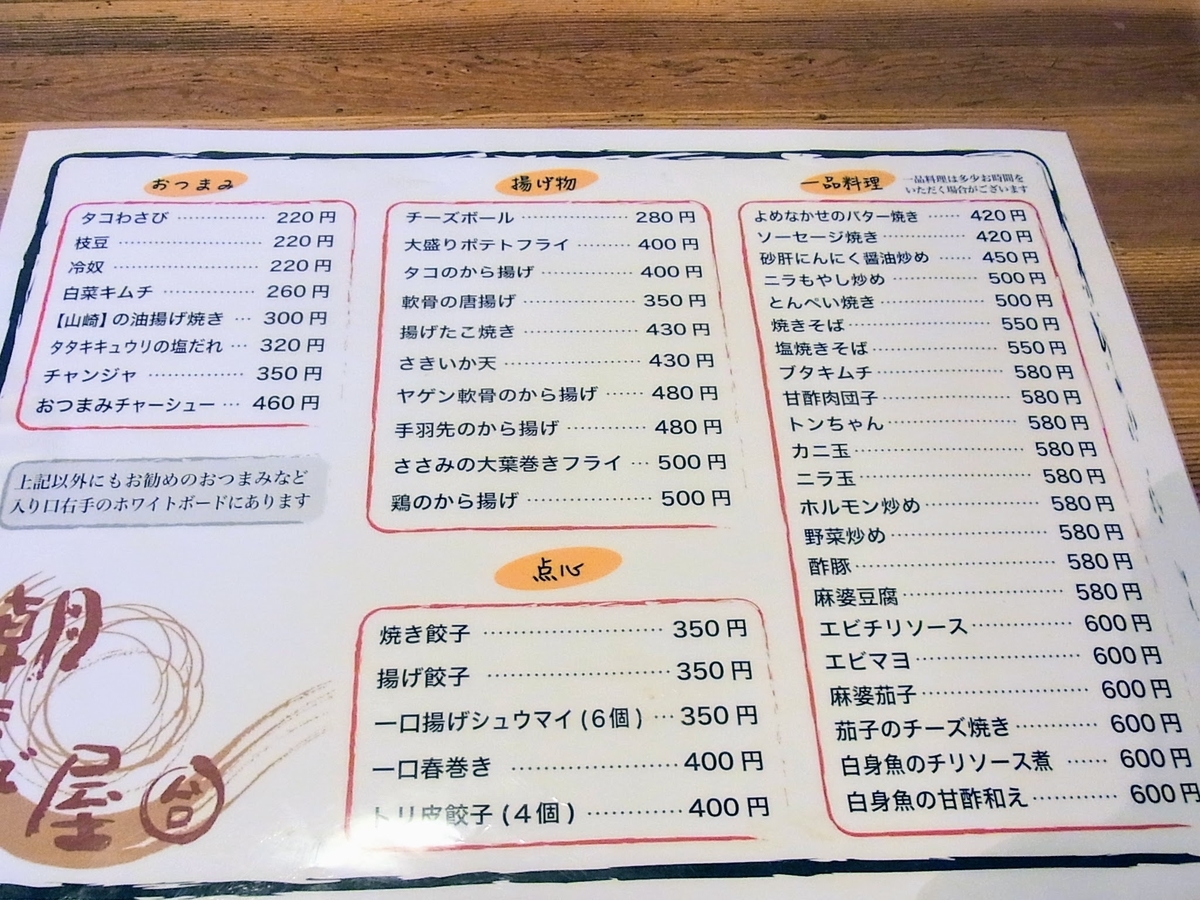 おつまみ
タコわさび ………… 220円
枝豆 ………… 220円
冷奴 ………… 220円
白菜キムチ ………… 260円
【山崎】の油揚げ焼き … 300円
タタキキュウリの塩だれ … 320円
チャンジャ ………… 350円
おつまみチャーシュー … 460円
上記以外にもお勧めのおつまみなど
入り口右手のホワイトボードにあります
揚げ物
チーズボール ………… 280円
大盛りポテトフライ ……… 400円
タコのから揚げ ………… 400円
軟骨の唐揚げ ………… 350円
揚げたこ焼き ………… 430円
さきいか天 ………… 430円
ヤゲン軟骨のから揚げ …… 480円
手羽先のから揚げ ………… 480円
ささみの大葉巻きフライ … 500円
鶏のから揚げ ………… 500円
点心
焼き餃子 ………… 350円
揚げ餃子 ………… 350円
一口揚げシュウマイ(6個) … 350円
一口春巻き ………… 400円
トリ皮餃子(4個) ………… 400円
一品料理
一品料理は多少お時間を
いただく場合がございます
よめなかせのバター焼き …… 420円
ソーセージ焼き ………… 420円
砂肝にんにく醤油炒め …… 450円
ニラもやし炒め ………… 500円
とんぺい焼き ………… 500円
焼きそば ………… 550円
塩焼きそば ………… 550円
ブタキムチ ………… 580円
甘酢肉団子 ………… 580円
トンちゃん ………… 580円
カニ玉 ………… 580円
ニラ玉 ………… 580円
ホルモン炒め ………… 580円
野菜炒め ………… 580円
酢豚 ………… 580円
麻婆豆腐 ………… 580円
エビチリソース ………… 600円
エビマヨ ………… 600円
麻婆茄子 ………… 600円
茄子のチーズ焼き ………… 600円
白身魚のチリソース煮 …… 600円
白身魚の甘酢和え ………… 600円
朝
屋